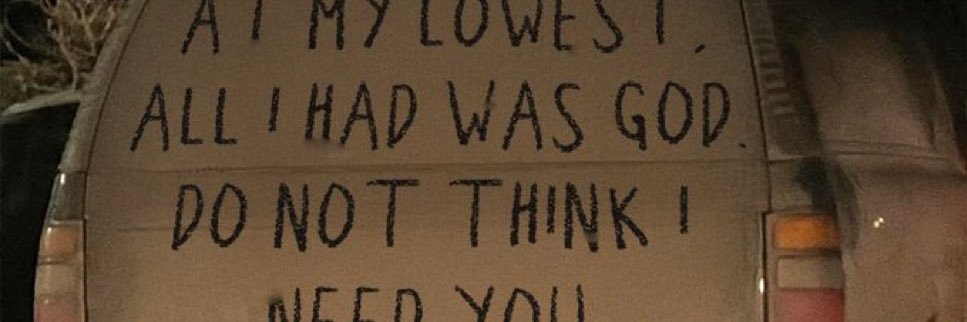 AT MY LOWEST,
ALL I HAD WAS GOD.
DO NOT THINK I
NEED YOU